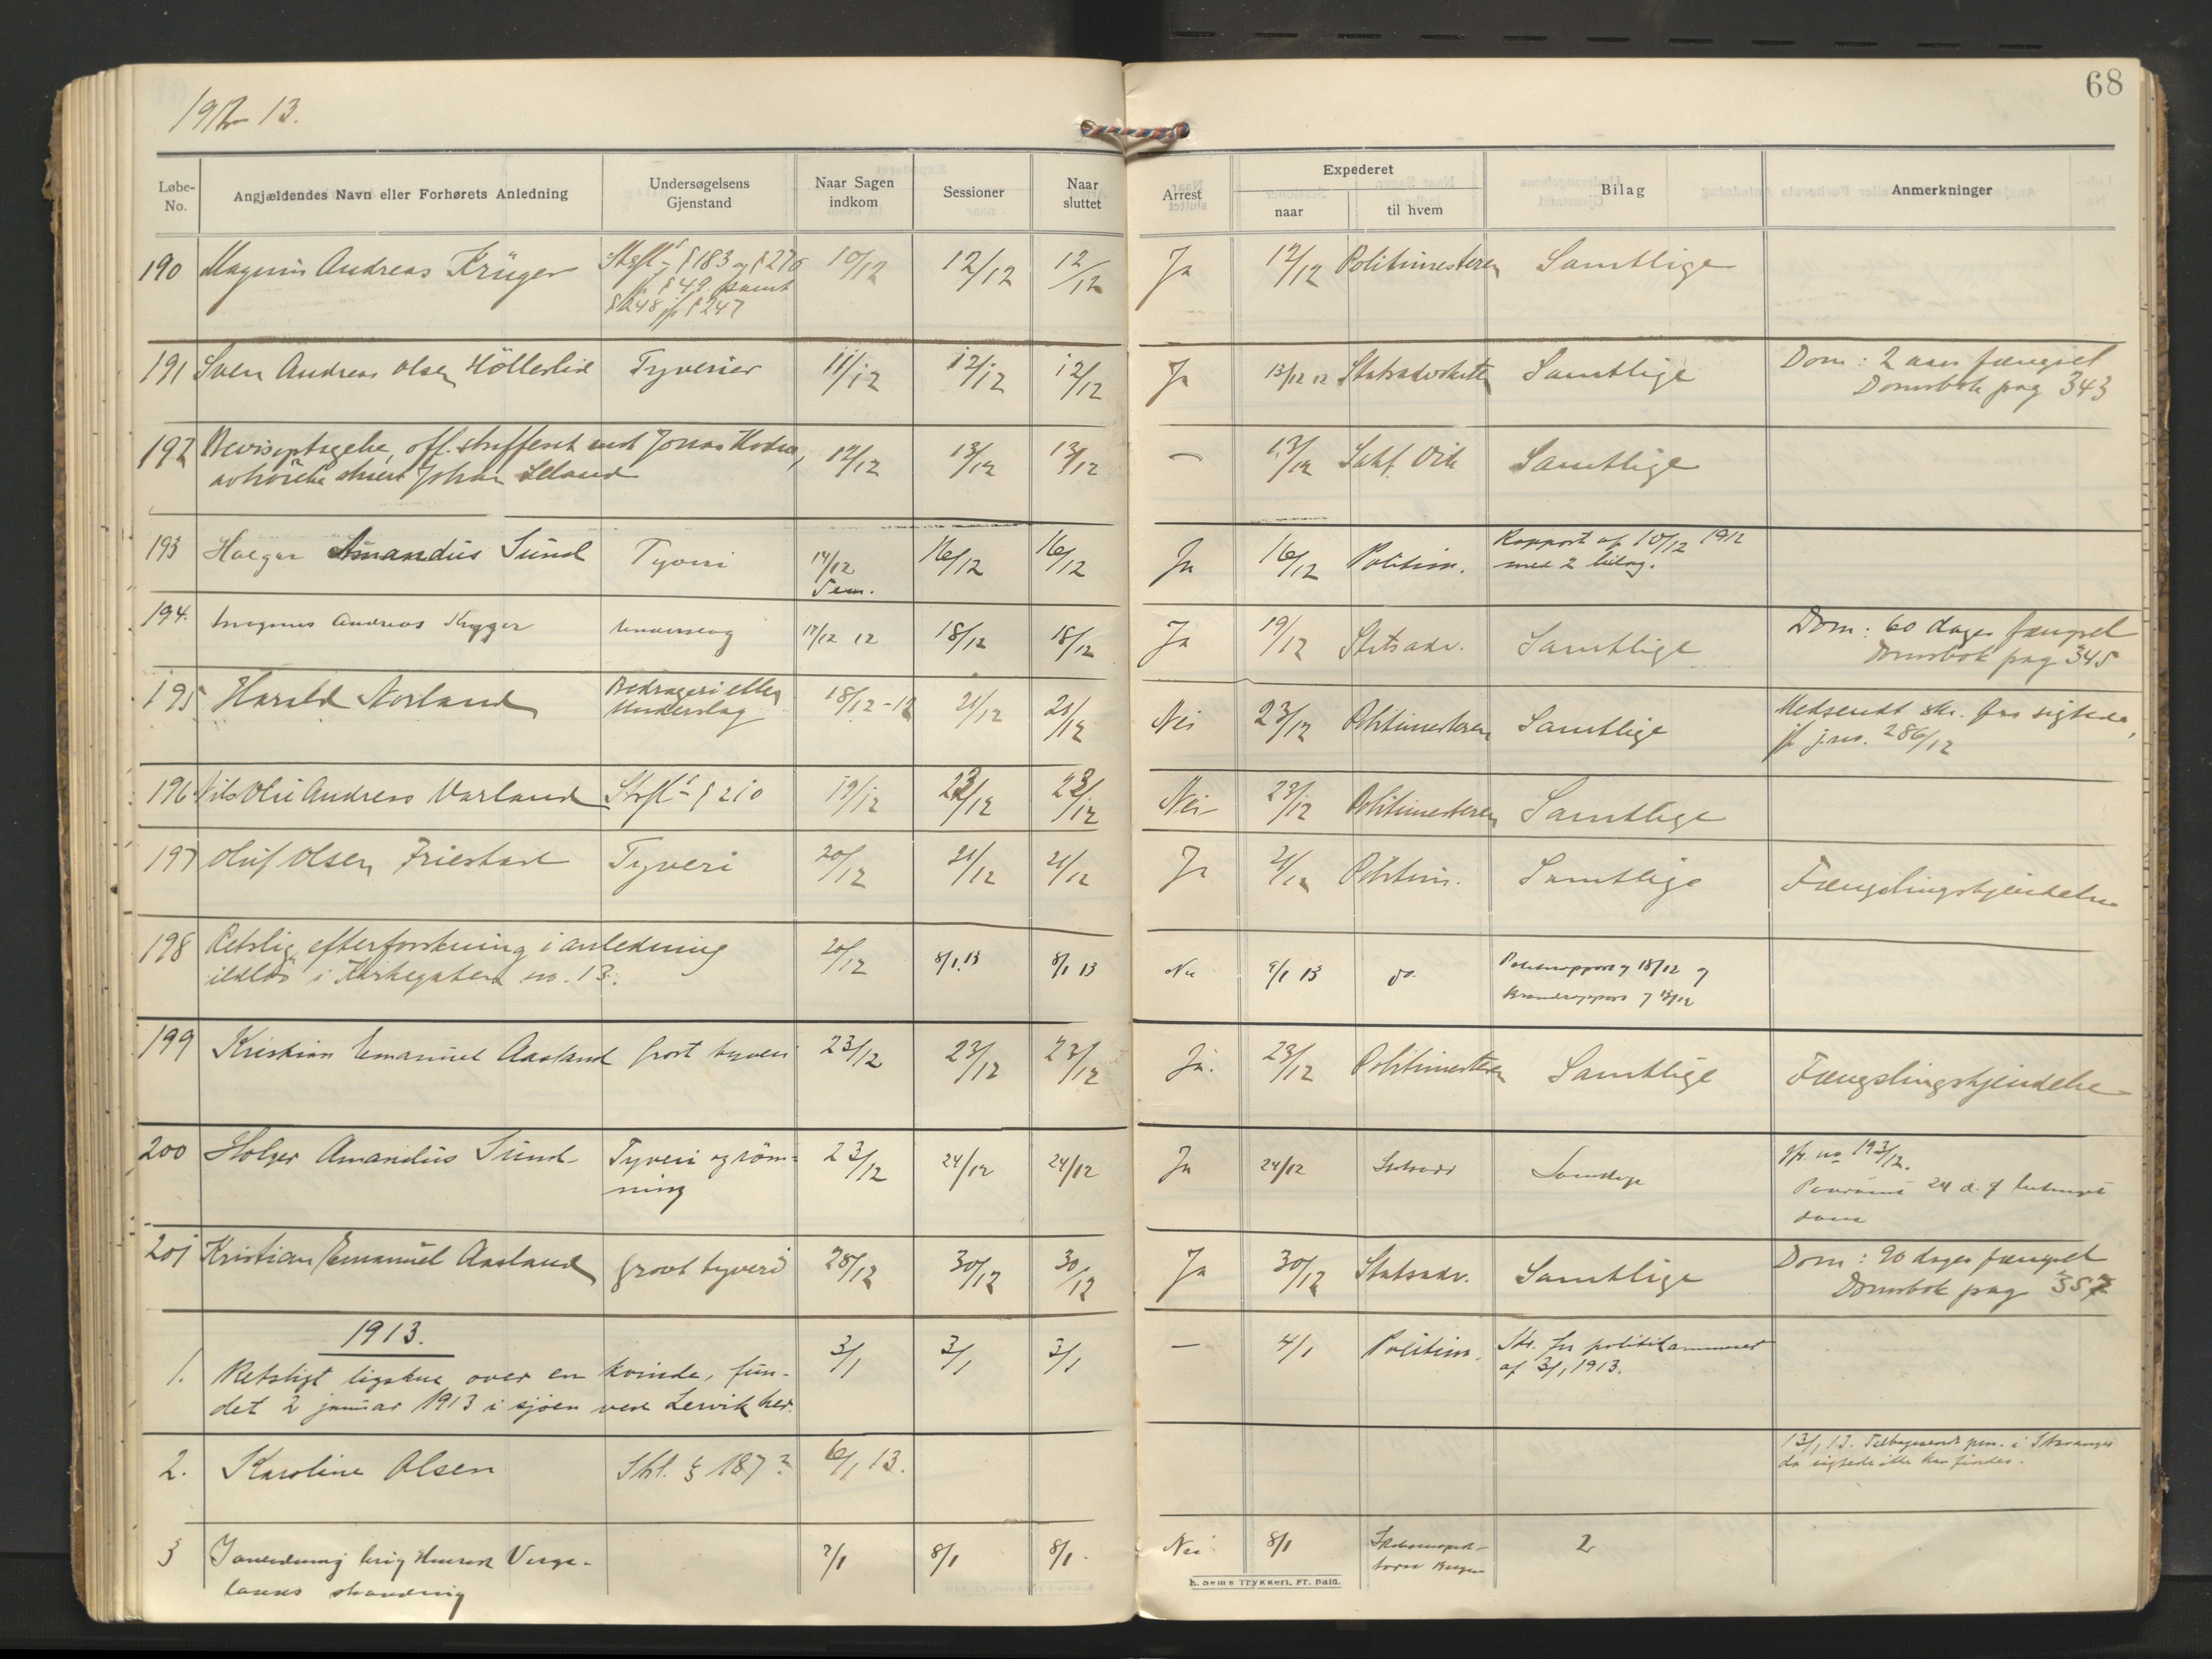 1912-13.
68
Løbe-No.
Angjældendes Navn eller Forhørets Anledning
Undersøgelsens Gjenstand
Naar Sagen indkom
Sessioner
Naar sluttet
Arrest
Expederet
naar
til hvem
Bilag
Anmerkninger
190 Magnus Andreas Krüger Strfl. § 183 og § 270 10/12 12/12 12/12 Ja 12/12 Politimesteren Samtlige
jfr § 49 samt
§ 248 jfr § 247
191 Sven Andreas Olsen Höllerlid Tyverier 11/12 12/12 12/12 Ja 13/12 12 Statsadvokaten Samtlige Dom: 2 aars fængsel
Domsbok pag 343
192 Bevisoptagelse, off. straffesak mot Jonas 12/12 13/12 13/12 — 13/12 Sakf. Samtlige
Johan
193 Holger Amandus Sund Tyveri 14/12 16/12 16/12 Ja 16/12 Politim. Rapport af 10/12 1912
med 2 bilag.
194. Magnus Andreas Kryger Underslag 17/12 12 18/12 18/12 Ja 19/12 Statsadv. Samtlige Dom: 60 dages fængsel
Domsbok pag 345
195 Harald Norland Bedrageri eller 18/12-12 21/12 21/12 Nei 23/12 Politimesteren Samtlige Medsendt skr. fra sigtede,
Underslag
jfr j.no. 286/12
196 Nils Olai Andreas Varland Strfl. § 210 19/12 23/12 23/12 Nei 23/12 Politimesteren Samtlige
197 Oluf Olsen Friestad Tyveri 20/12 21/12 21/12 Ja 21/12 Politim. Samtlige Fængslingskjendelse
198 Retslig efterforskning i anledning 20/12 8/1 13 8/1 13 Nei 9/1 13 do. Politirapport 18/12 og
ildløs i Kirkegaten no. 13.
Brandrapport
199 Kristian Emanuel Aasland grovt tyveri 23/12 23/12 23/12 Ja. 23/12 Politimesteren Samtlige Fængslingskjendelse
200 Holger Amandus Sund Tyveri og röm- 23/12 24/12 24/12 Ja 24/12 Statsadv Samtlige Jfr. no 193/12.
ning
24 d. f betinget
dom
201 Kristian Emanuel Aasland grovt tyveri 28/12 30/12 30/12 Ja 30/12 Statsadv. Samtlige Dom: 90 dages fængsel
Domsbok pag 357
1913.
1. Retsligt ligskue over en kvinde, fun- 3/1 3/1 3/1 — 4/1 Politim. Skr. fra politikammeret
det 2 januar 1913 i sjöen ved Lervik her.
af 3/1 1913.
2. Karoline Olsen Strl. § 187? 6/1 13. 13/1 13. Tilbagesendt pm. i Stavanger
da sigtede ikke kan findes.
3 I anledning brig Henrik Werge- 7/1 8/1 8/1 Nei 8/1 Skibsinspek- 2
lands stranding
tøren Bergen
E. Sem's Trykkeri, Fr. hald.